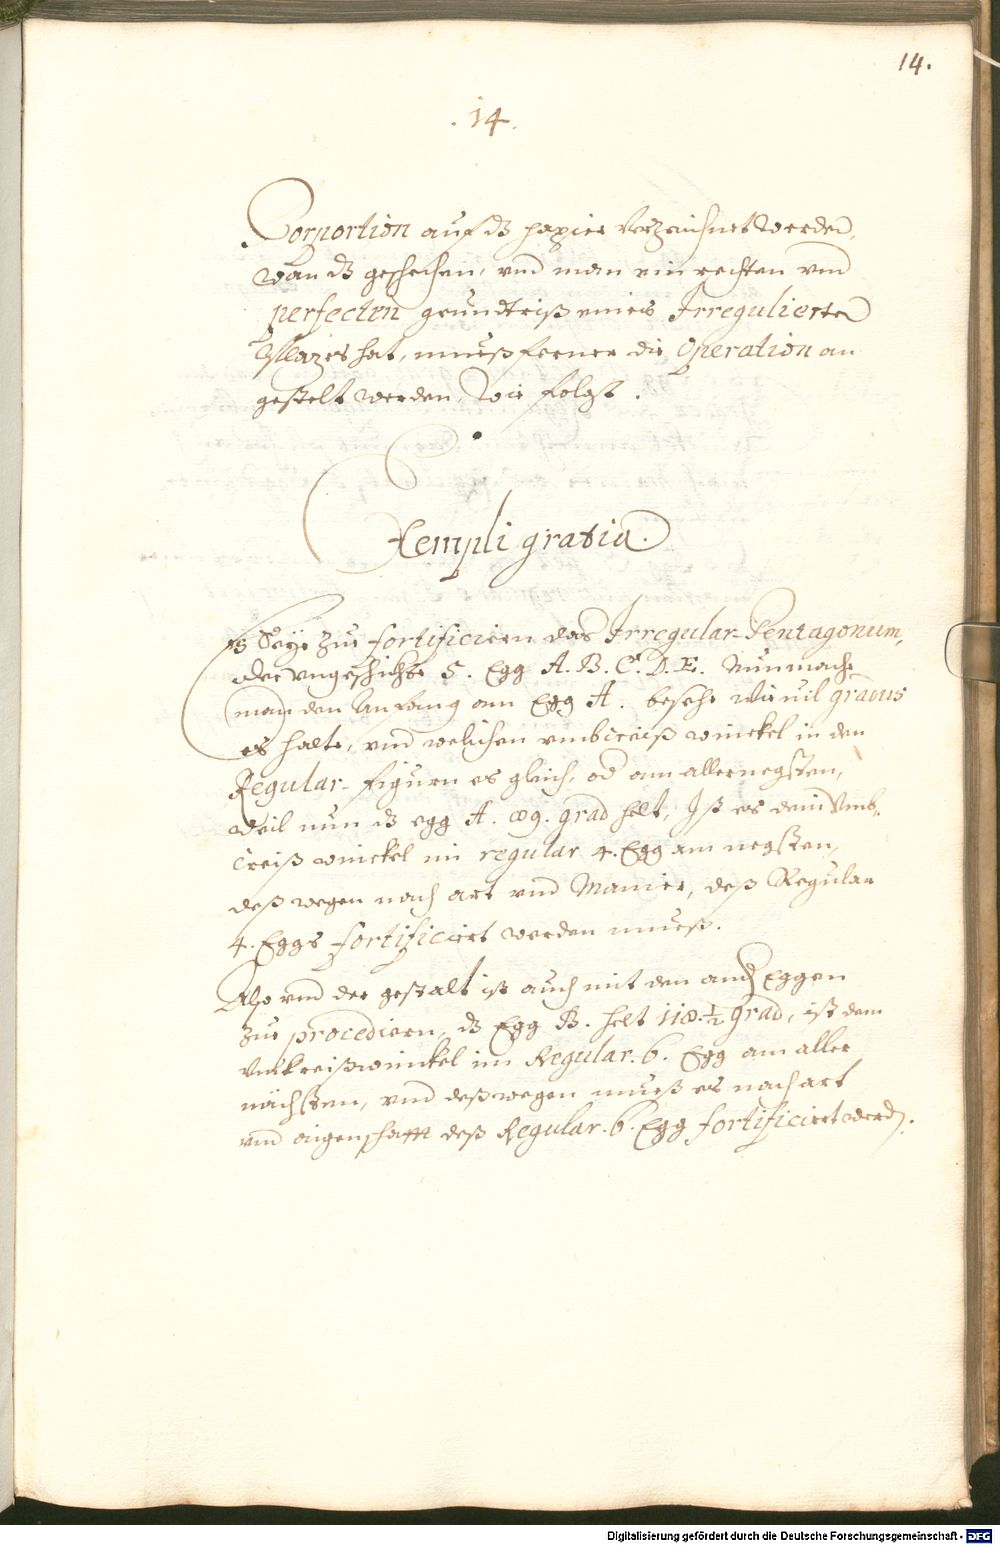 14.
.14.
Porportion auf dz papier verzaichnet werden,
wan dz geschechen, vnd man ein rechten vnd
perfecten grundtriß eines Irregulierten
Plazes hat, mueß ferner die Operation an
gestelt werden, wie folgt.
Exempli gratia.
Es Seye zue fortificiern das Irregular-Pentagonum,
der vngeschickte 5. Egg A. B. C. D. E. Nun mache
man den Anfang am Egg A. besehe wie uil gradus
es halte, vnd welichen vmbcreiß winckel in den
Regular-figurn es gleich, od am allernegsten,
weil nun dz egg A. 89. grad helt, Ist es dem Vmb-
creiß winckel im regular 4. Egg am negsten,
deßwegen nach art vnd Manier, deß Regular
4. Eggs fortificiert werden mueß.
Also vnd der gestalt ist auch mit den andern Eggen
zue procediern, dz Egg B. helt 118 ½ grad, ist dem
Vmbkreißwinckel im Regular. 6. Egg am aller
nächsten, vnd deßwegen mueß es nach art
vnd aigenschafft deß Regular. 6. Egg fortificiert werden.
Digitalisierung gefördert durch die Deutsche Forschungsgemeinschaft - DFG